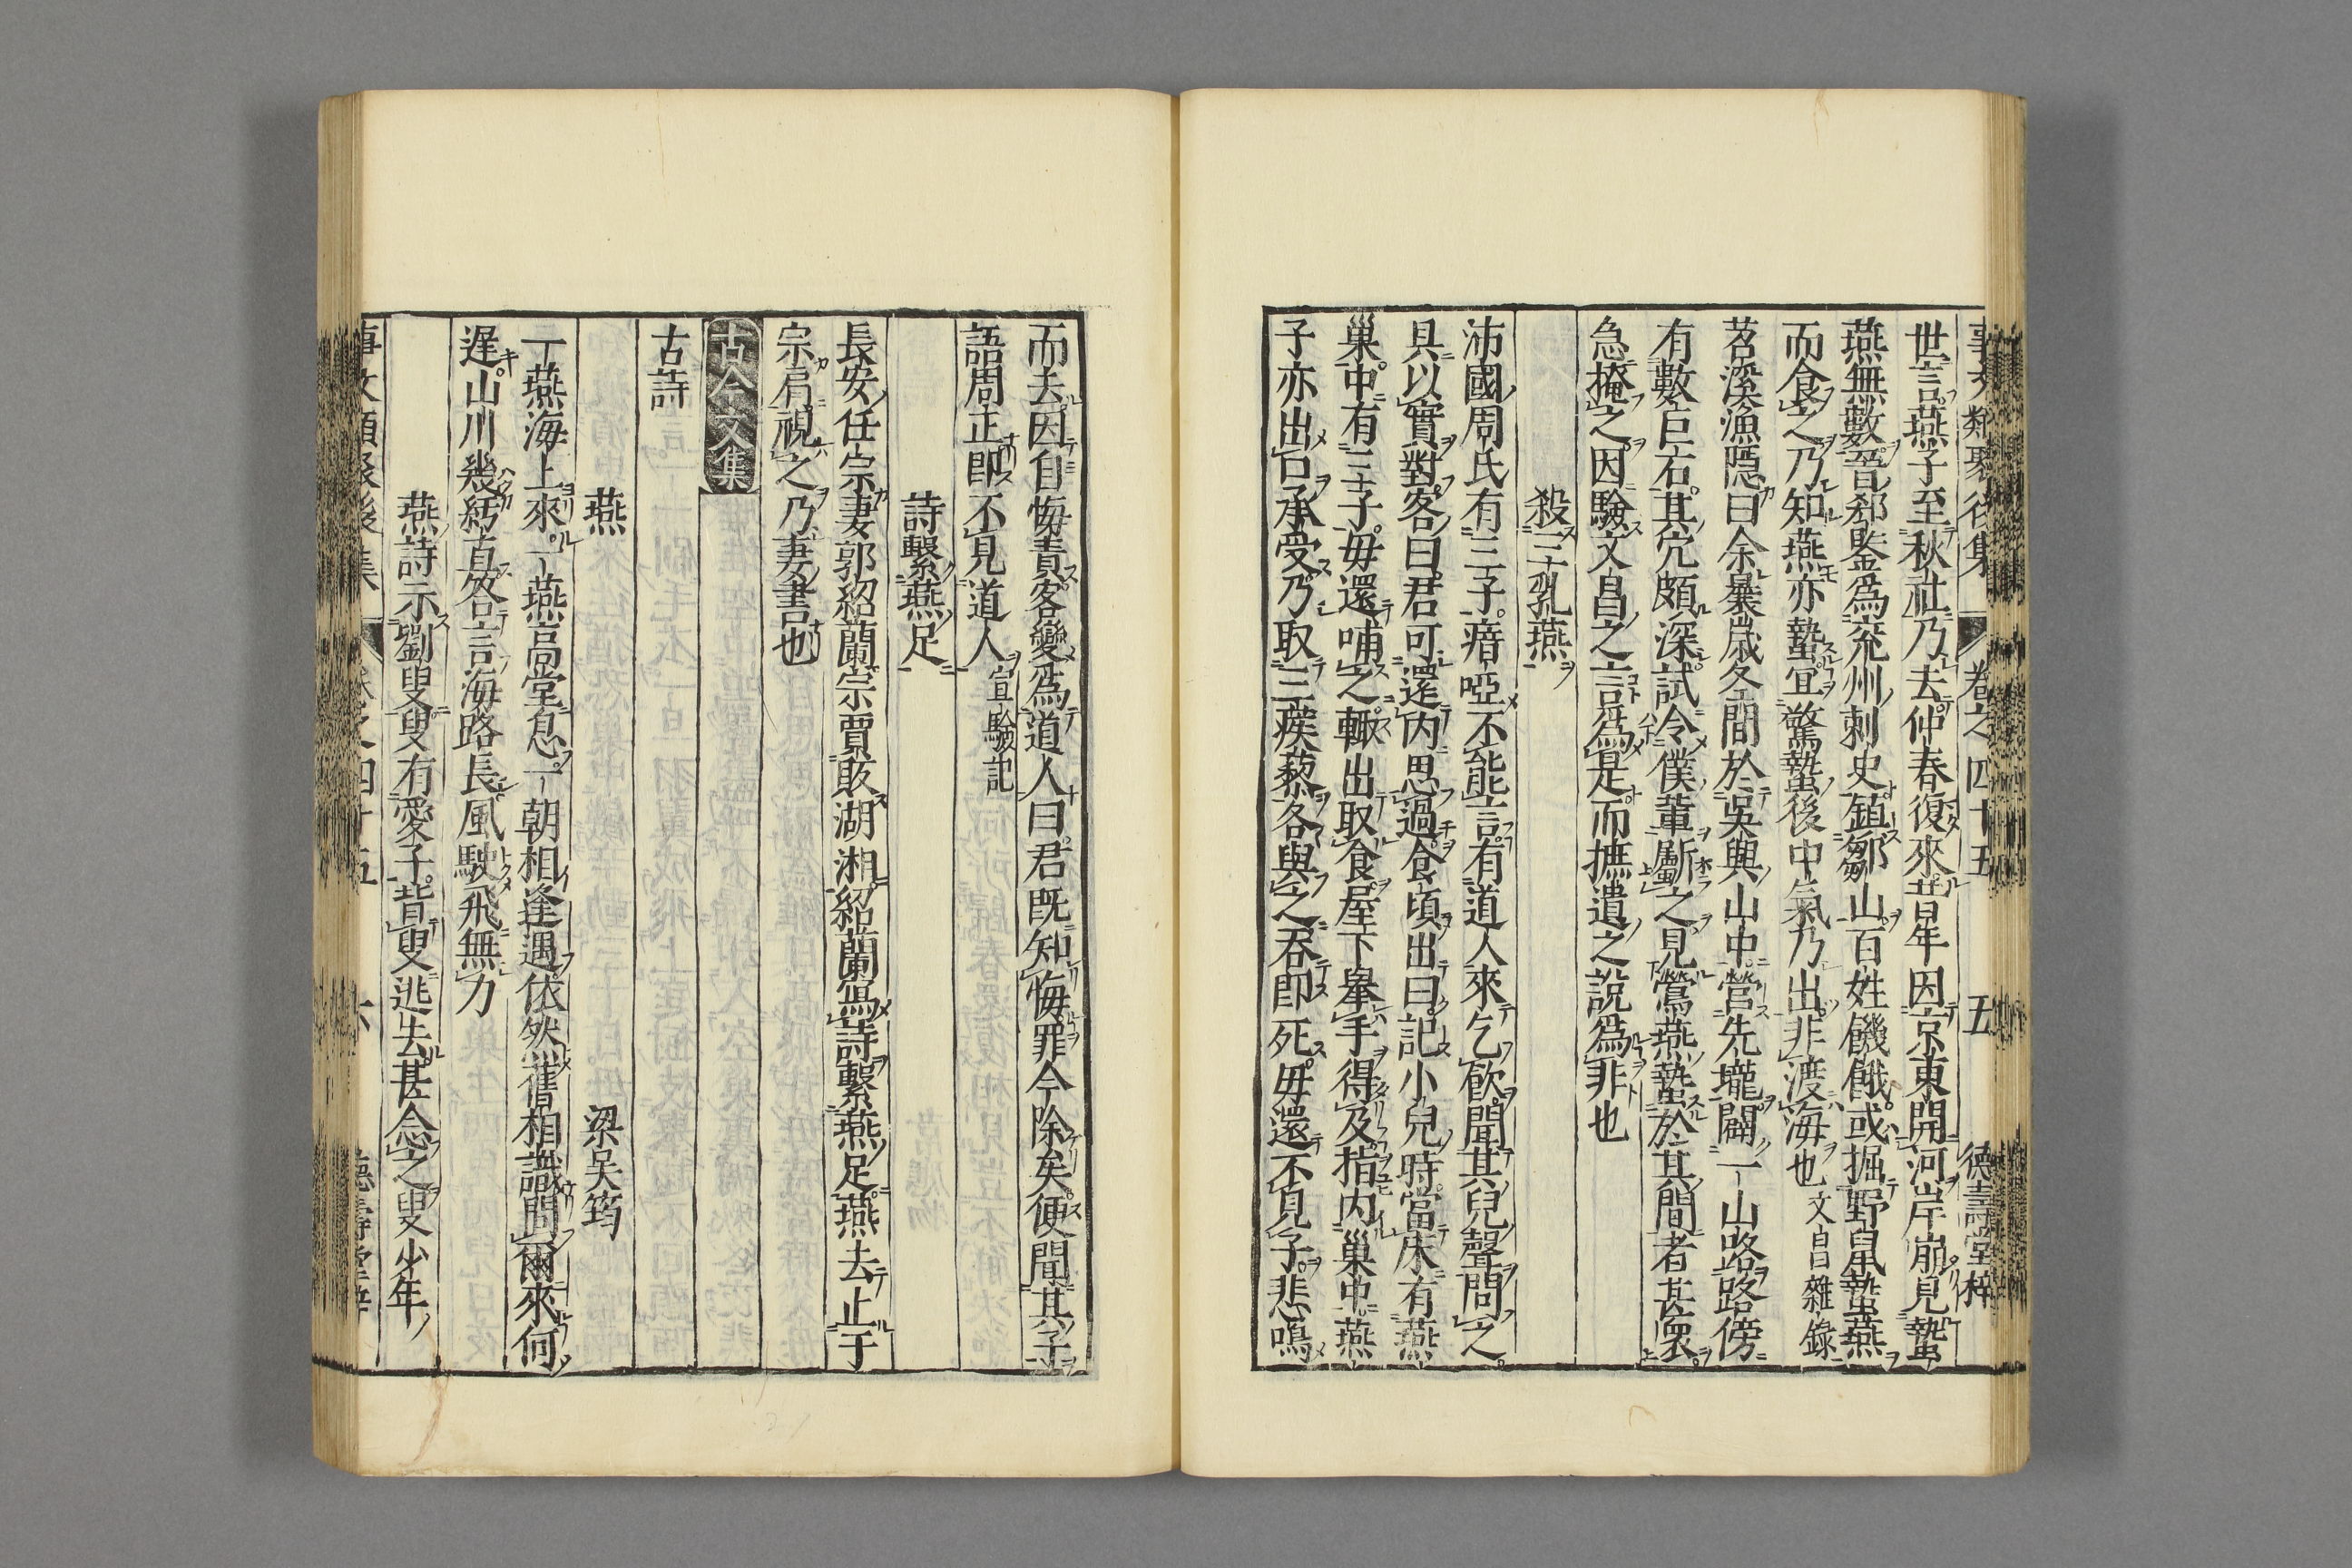 事文類聚後集 卷之四十五 五 德壽堂梓
世言燕子至秋社乃去仲春復來昔年因京東開河岸崩見蟄
燕無數晉郄鑒爲兗州刺史鎮鄒山百姓饑餓或掘野鼠蟄燕
而食之乃知燕亦蟄宜驚蟄後中氣乃出非渡海也文昌雜錄
苕溪漁隱曰余曩歲冬間於吳興山中營先壠闢一山路路傍
有數巨石其穴頗深試令僕輩斸之見鶯燕蟄於其間者甚衆
急掩之因驗文昌之言爲是而撫遺之說爲非也
殺三乳燕
沛國周氏有三子瘖啞不能言有道人來乞飲聞其兒聲問之
具以實對客曰君可還內思過食頃出曰記小兒時當床有燕
巢中有三子母還哺之輒出取食屋下舉手得及指內巢中燕
子亦出口承受乃取三蒺藜各與之吞即死母還不見子悲鳴
而去因自悔責客變爲道人曰君既知悔罪今除矣便聞其子
語周正即不見道人宣驗記
詩繫燕足
長安任宗妻郭紹蘭宗賈販湖湘紹蘭寫詩繫燕足燕去止于
宗肩視之乃妻書也
古今文集
古詩
燕 梁吳筠
一燕海上來一燕高堂息一朝相逢遇依然舊相識問爾來何
遲山川幾紆直答言海路長風駛飛無力
燕詩示劉叟叟有愛子背叟逃去甚念之叟少年
事文類聚後集 卷之四十五 六 德壽堂梓